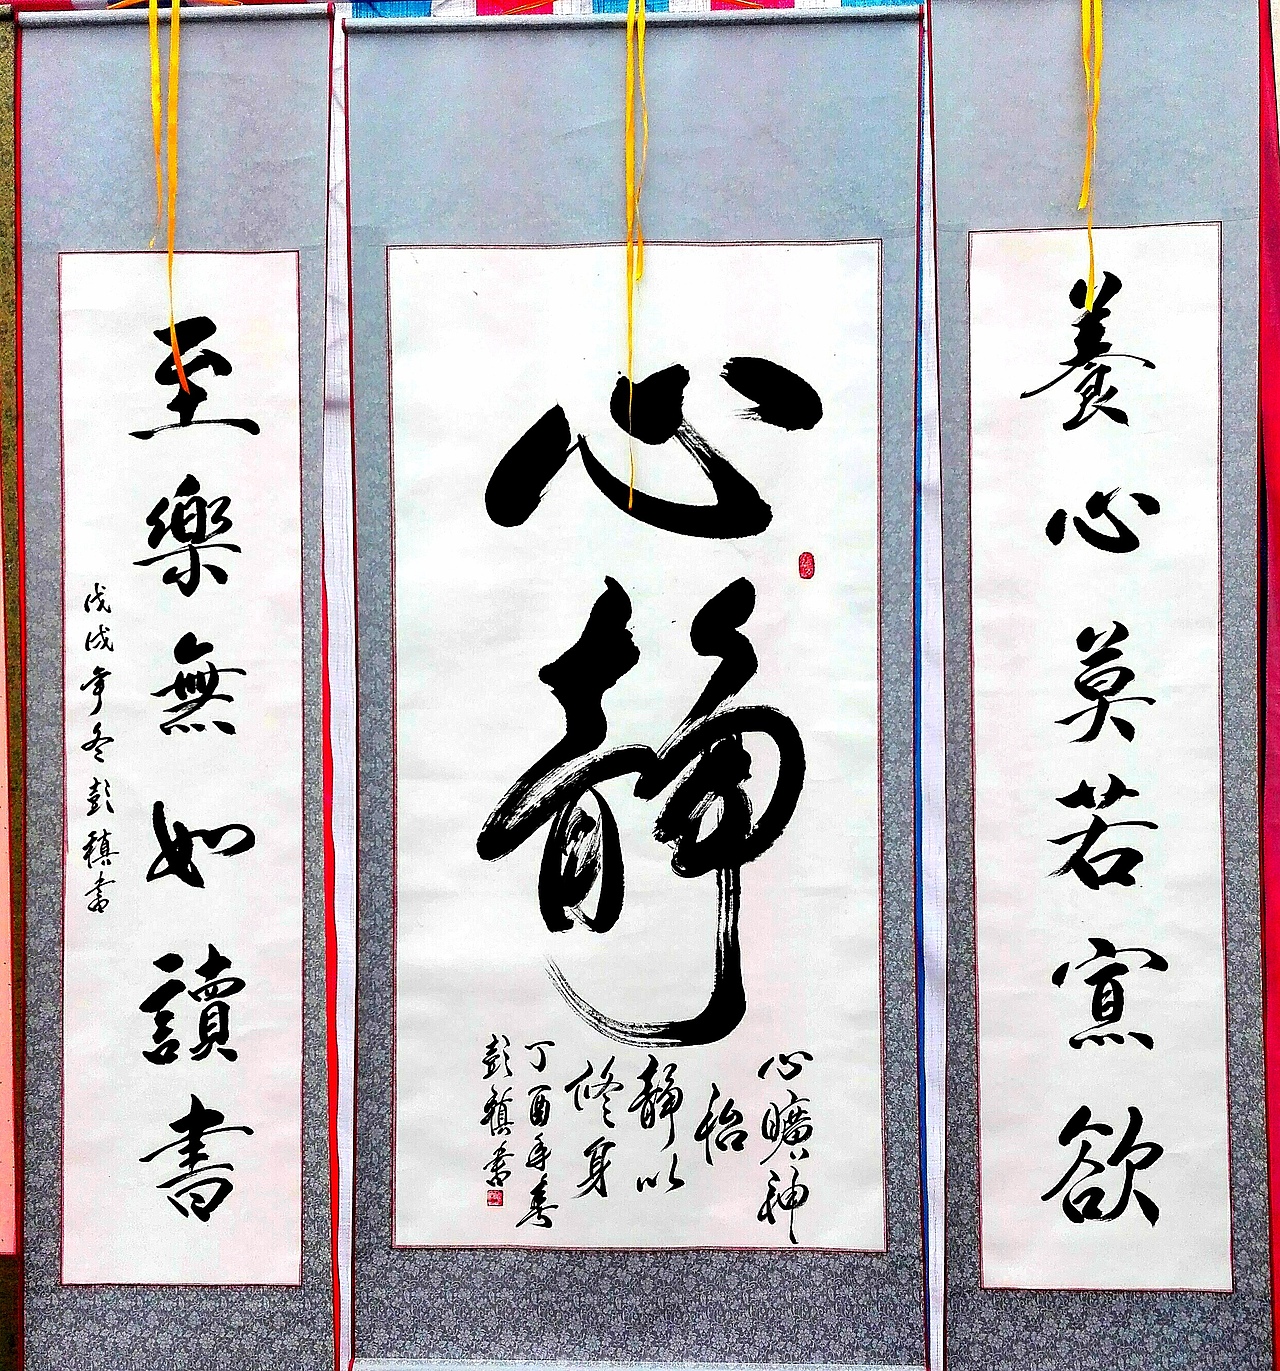 養心莫若寡欲
心静
心曠神
怡
静以
修身
丁酉年春
彭稹書
至樂無如讀書
戊戌年冬彭稹書